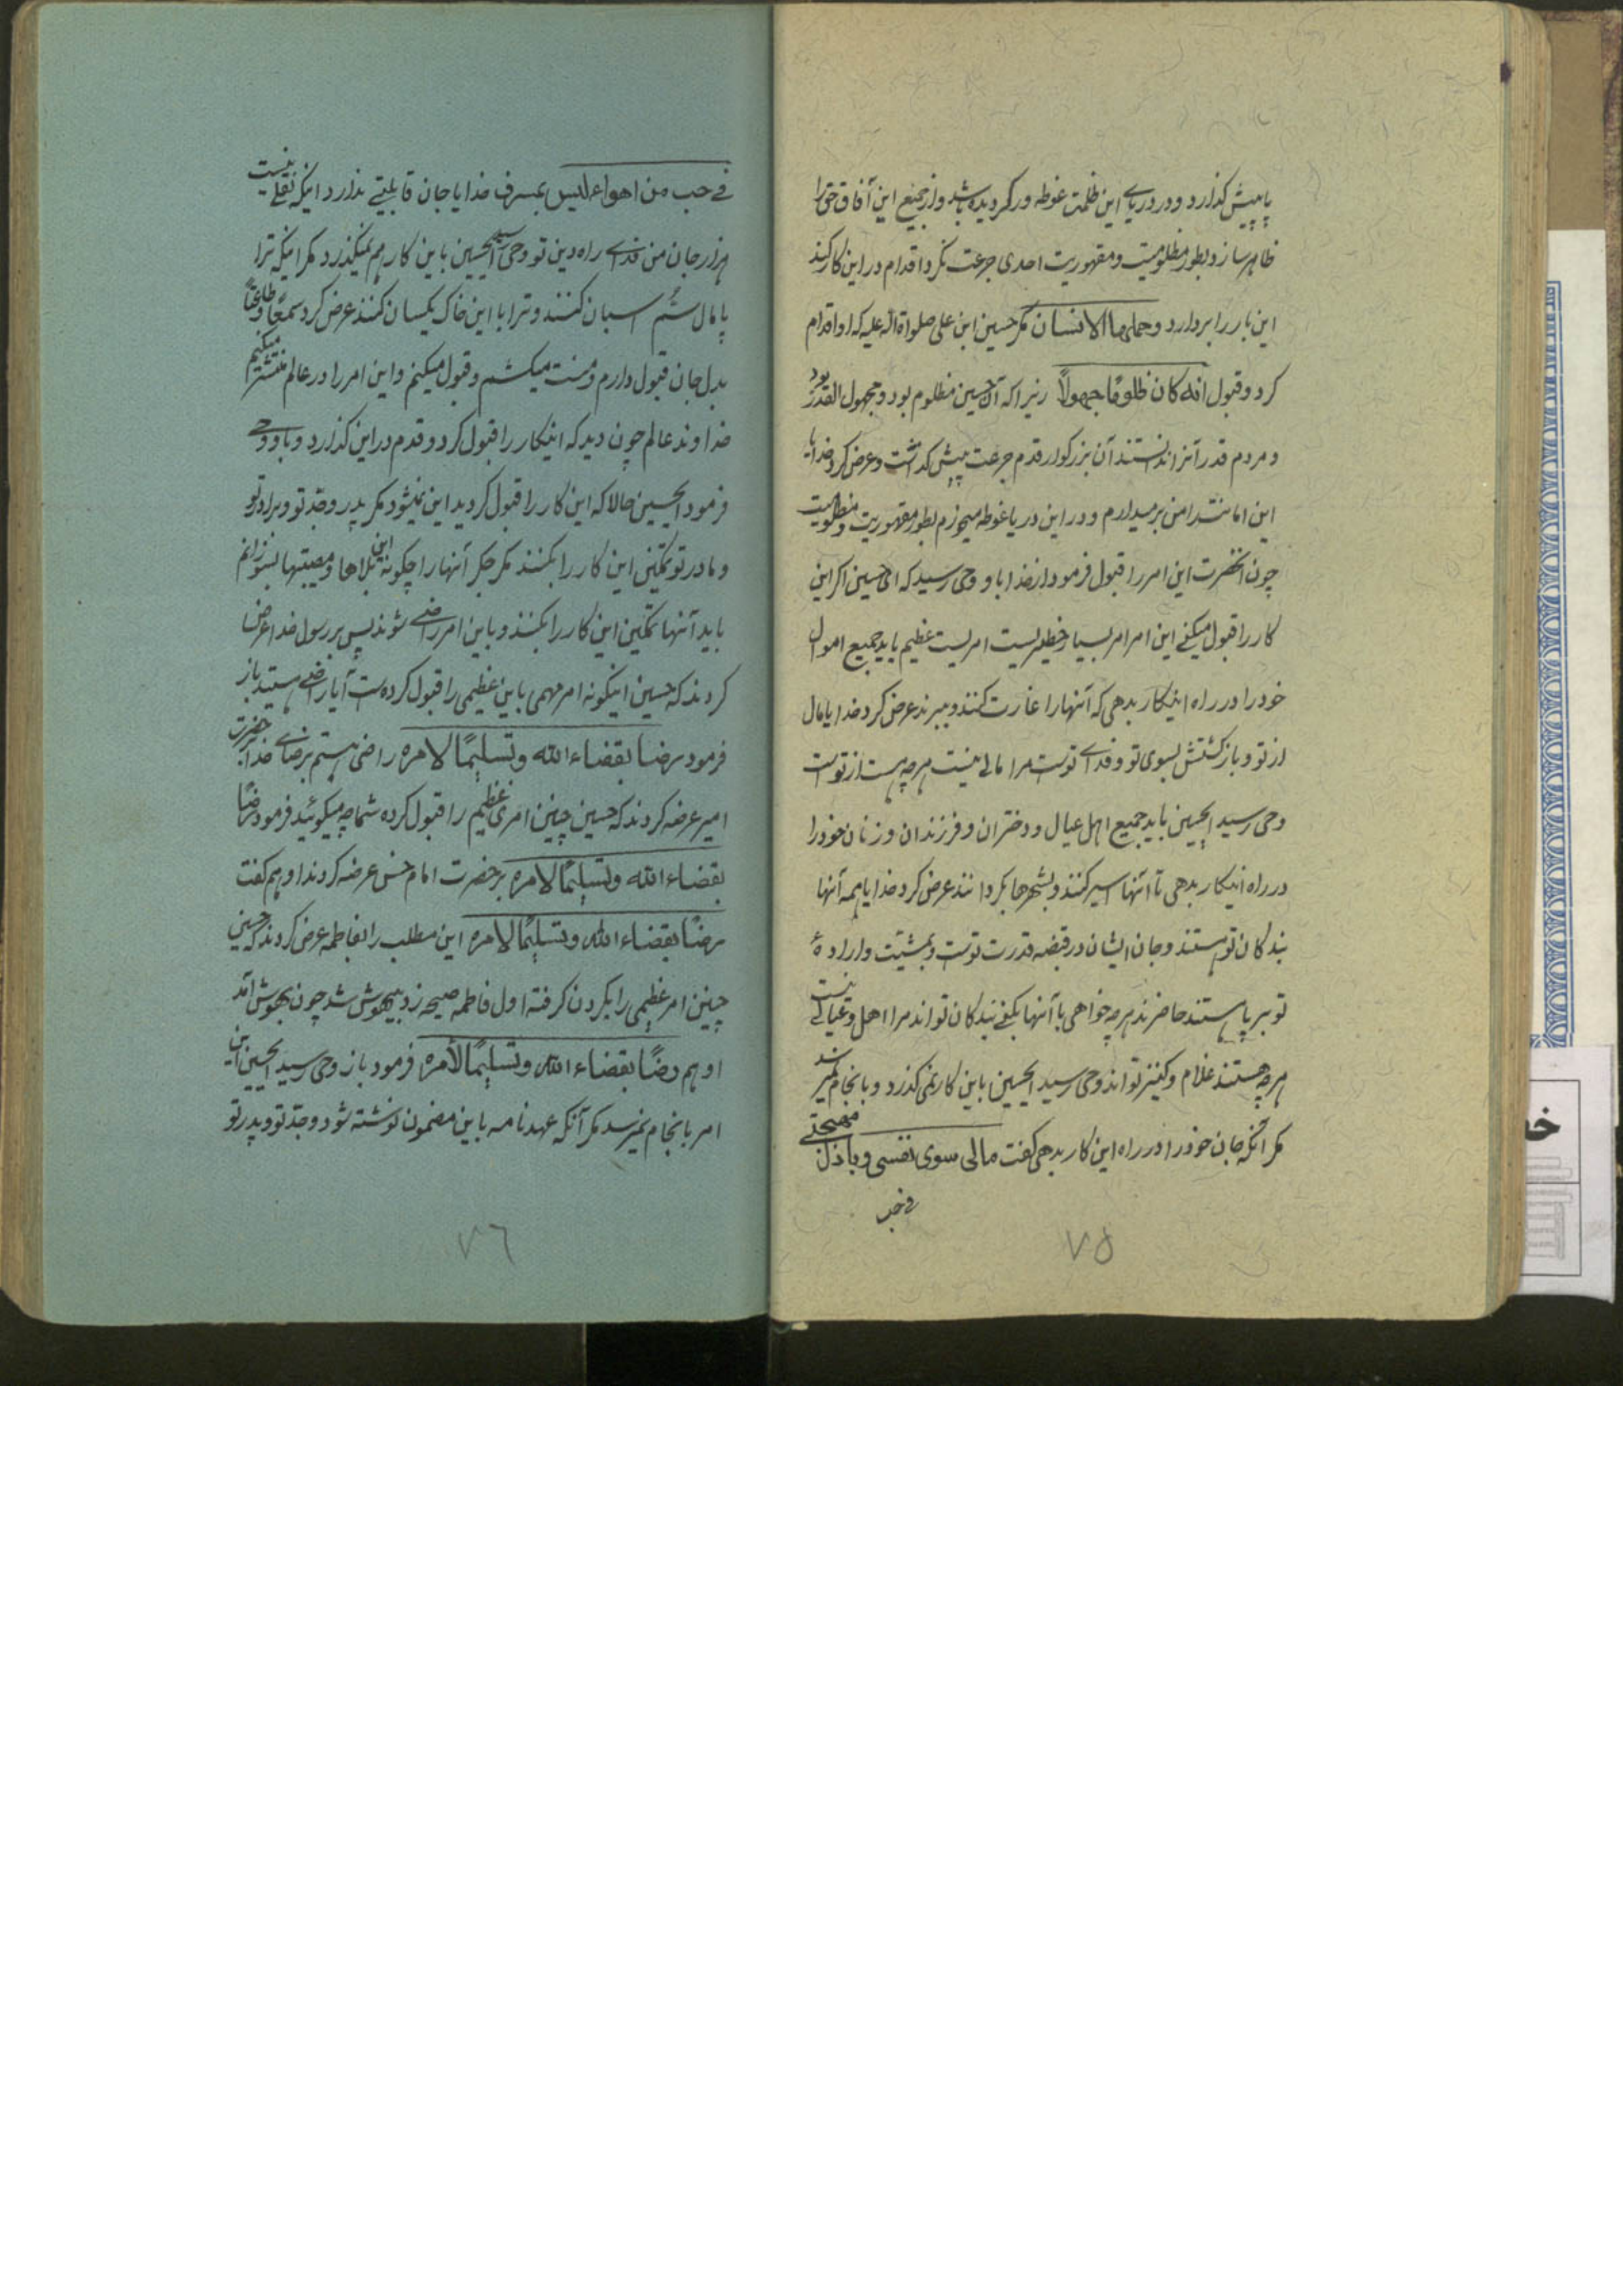 پا پیش گذارد و در دریای این ظلمت غوطه ور گردیده باشد و از جمیع این آفاق حق را
ظاهر سازد و بطور مظلومیت و مقهوریت احدی جرءت نکرد اقدام در این کار کند
این بار را بردارد وحملها الانسان مگر حسین ابن علی صلواة الله علیه که او اقدام
کرد و قبول انه کان ظلومًا جهولًا زیرا که آن حسین مظلوم بود و مجهول القدر بود
و مردم قدر آنرا ندانستند آن بزرگوار قدم جرءت پیش گذاشت و عرض کرد خدایا
این امانت را من برمیدارم و در این دریا غوطه میخورم بطور مقهوریت و مظلومیت
چون آنحضرت این امر را قبول فرمود از خدا باو وحی رسید که ای حسین اگر این
کار را قبول میکنی این امر امر بسیار خطیریست امریست عظیم باید جمیع اموال
خود را در راه اینکار بدهی که آنها را غارت کنند و ببرند عرض کرد خدایا مال
از تو و بازگشتش بسوی تو و فدای توست مرا مالی نیست هرچه هست از توست
وحی رسید ایحسین باید جمیع اهل عیال و دختران و فرزندان و زنان خود را
در راه اینکار بدهی تا آنها اسیر کنند و بشهرها بگردانند عرض کرد خدایا همه آنها
بندگان تو هستند و جان ایشان در قبضه قدرت توست و بمشیّت و ارادهٔ
تو بر پا هستند حاضرند هرچه خواهی با آنها بکنی بندگان تواند مرا اهل و عیالی نیست
هرچه هستند غلام و کنیز تواند وحی رسید ایحسین باین کار نمی گذرد و بانجام نمیرسد
مگر آنکه جان خود را در راه این کار بدهی گفت مالی سوی نفسی وباذل مهجتی
فی حب
٧٥
فی حب من اهواه لیس بمسرف خدایا جان قابلیتی ندارد اینکه نقلی نیست
هزار جان من فدای راه دین تو وحی رسید ایحسین باین کار هم نمیگذرد مگر اینکه ترا
پامال سُم اسبان کنند و ترا با این خاک یکسان کنند عرض کرد سمعًا و طاعتًا
بدل جان قبول دارم و منت میکشم و قبول میکنم و این امر را در عالم منتشر میکنم
خداوند عالم چون دید که اینکار را قبول کرد و قدم در این گذارد و باو وحی
فرمود ایحسین حالا که این کار را قبول کردید این نمیشود مگر پدر و جدّ تو و برادر تو
و مادر تو تمکین این کار را بکنند مگر جگر آنها را چگونه این بلاها و مصیبتها بسوزانم
باید آنها تمکین این کار را بکنند و باین امر راضی شوند پس بر رسول خدا عرض
کردند که حسین اینگونه امر مهمی باین عظیمی را قبول کرده‌ست آیا راضی هستید باز
فرمود رضا بقضاء الله وتسلیمًا لامره راضی هستم برضای خدا بحضرت
امیر عرضه کردند که حسین چنین امری عظیم را قبول کرده شما چه میگوئید فرمود رضًا
بقضاء الله وتسلیمًا لامره بر حضرت امام حسن عرضه کردند او هم گفت
رضًا بقضاء الله وتسلیمًا لامره این مطلب را بفاطمه عرض کردند که حسین
چنین امر عظیمی را بگردن گرفته اول فاطمه صیحه زد بیهوش شد چون بهوش آمد
او هم رضًا بقضاء الله وتسلیمًا لأمره فرمود باز وحی رسید ایحسین این
امر بانجام نمیرسد مگر آنکه عهدنامه باین مضمون نوشته شود و جدّ تو و پدر تو
٧٦